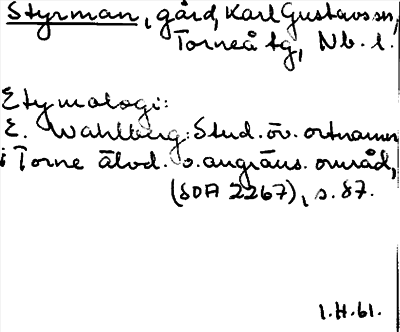 Styrman, gård, Karl Gustavs sn,
Torneå tg, Nb. l.
Etymologi:
E. Wahlberg: Stud. öv. ortnamn
i Torne älvd. o. angräns. områd,
(SOA 2267), s. 87.
1.H.61.